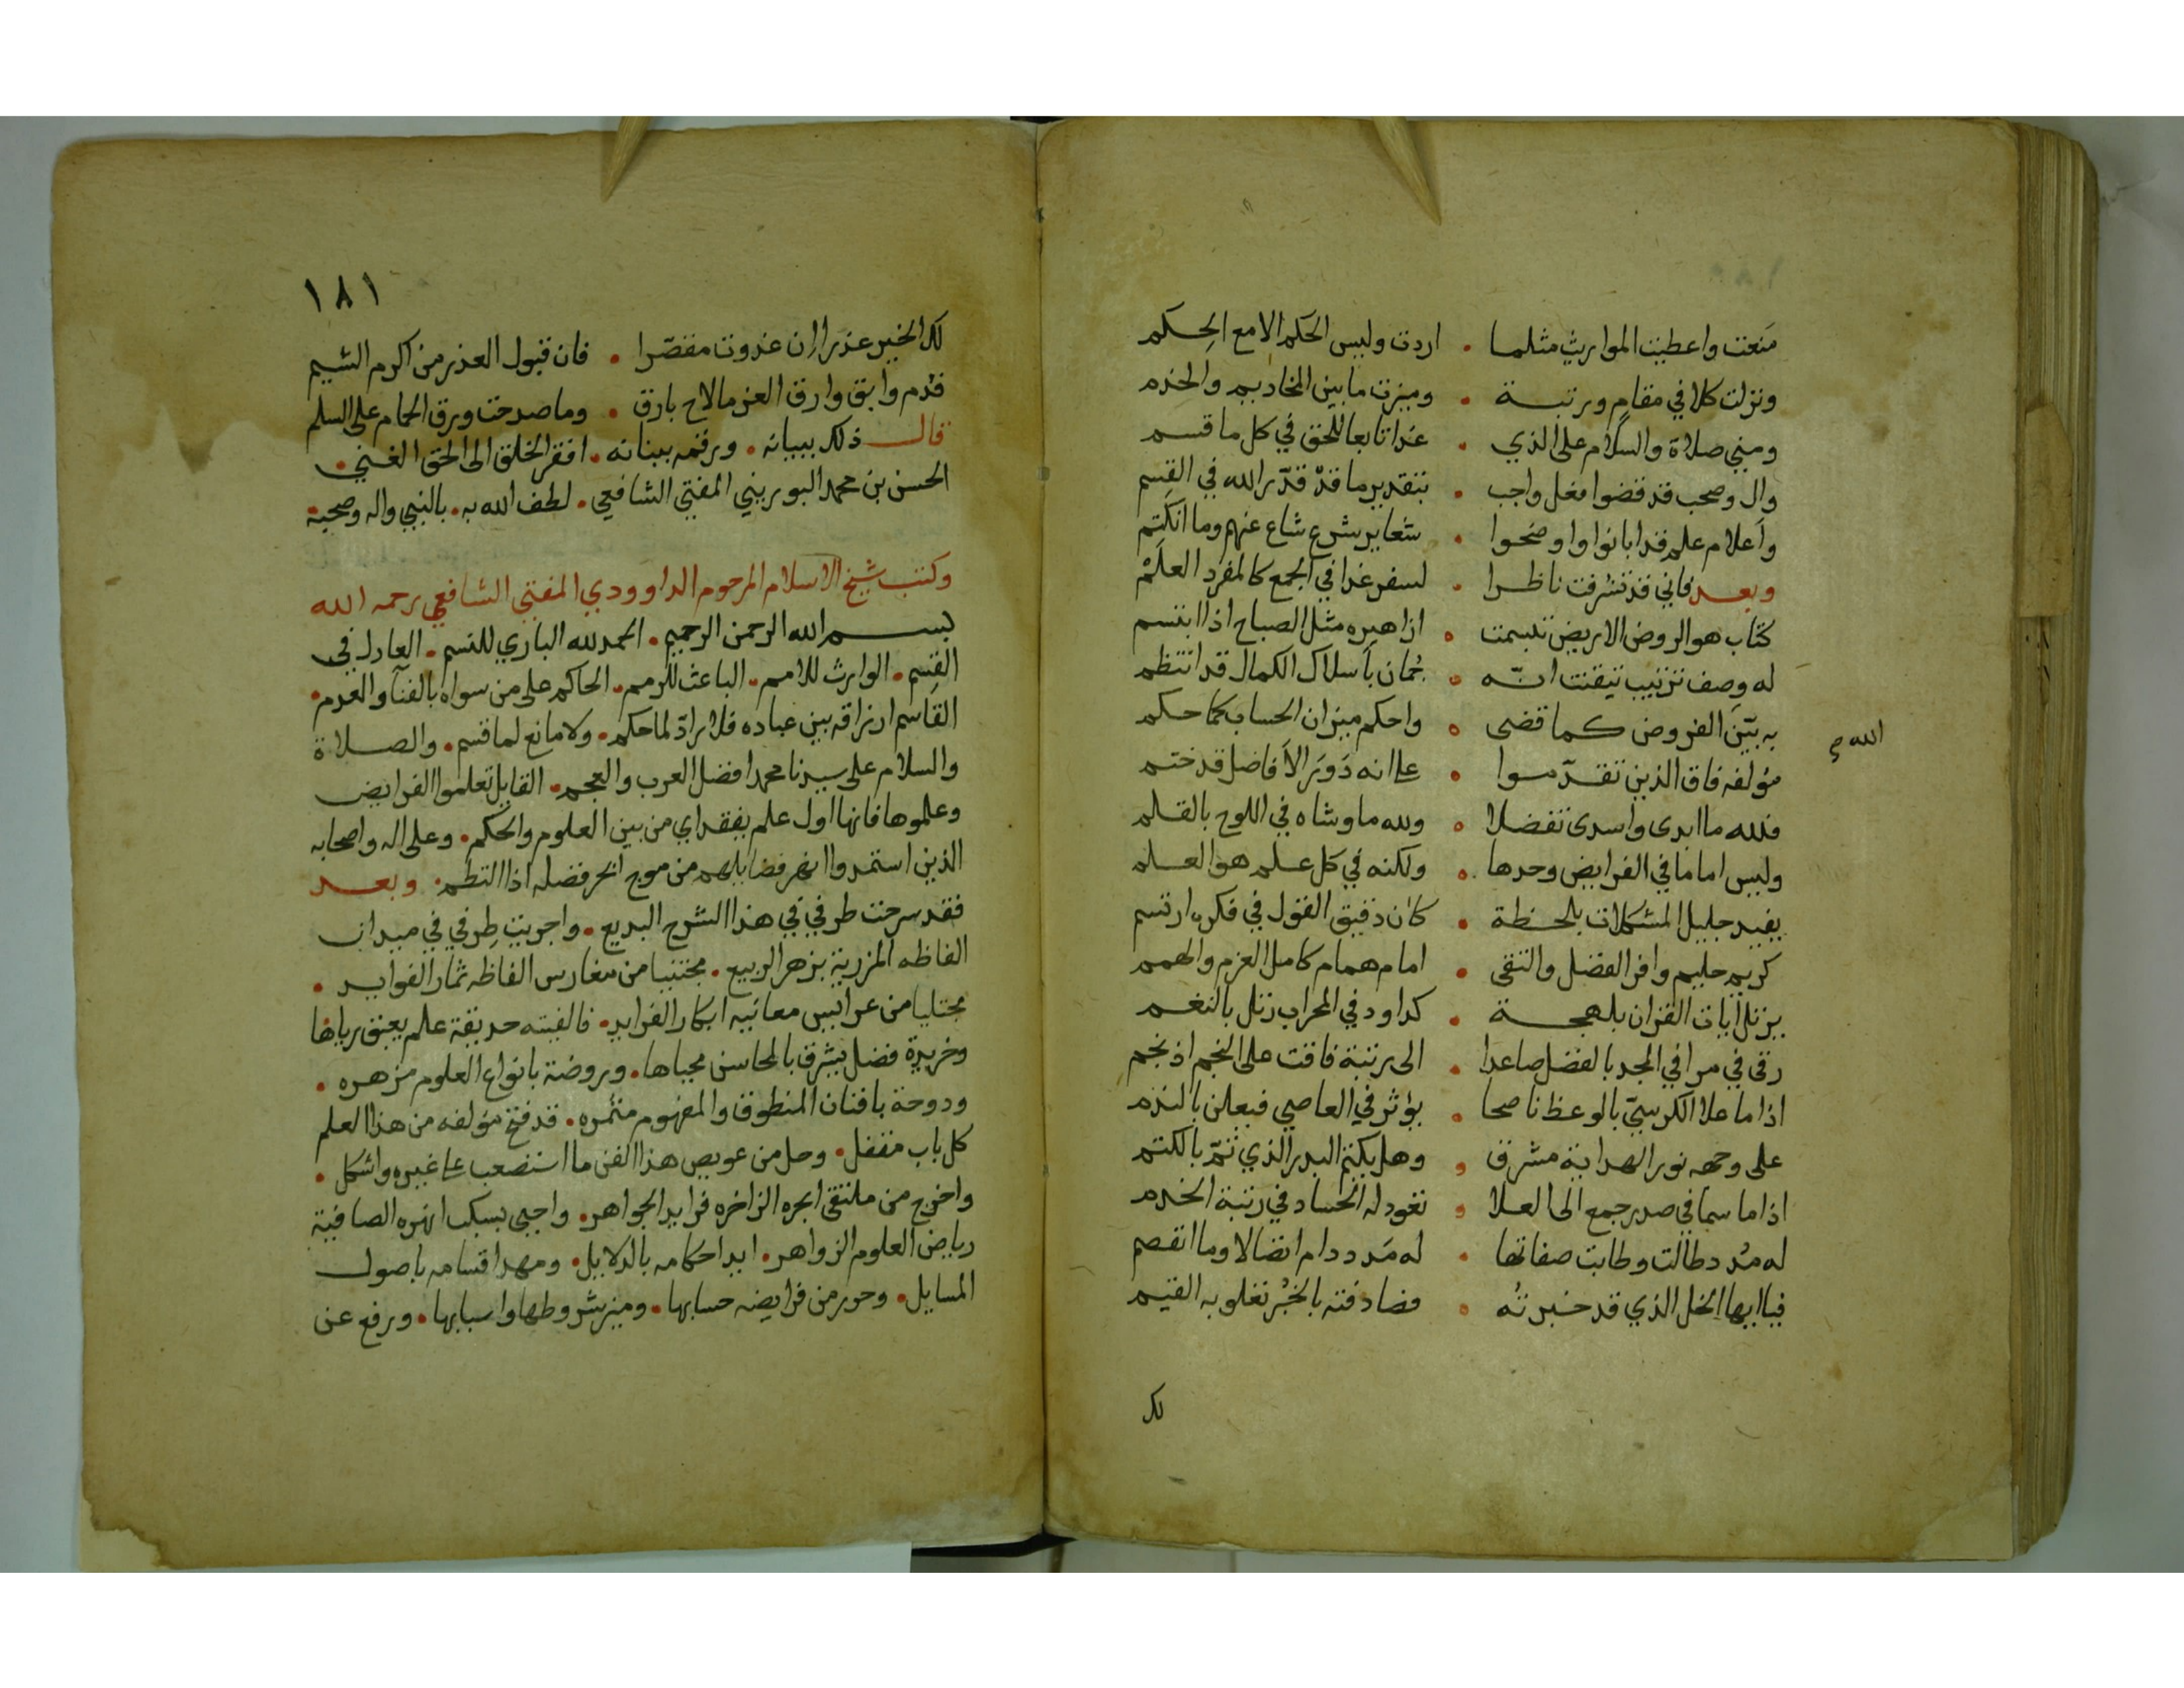 منعت واعطيت المواريث مثلما • اردت وليس الحكم الامع الحكم
ونزلت كلا في مقام ورتبة • وميزت ما بين المخاديم والخدم
ومني صلاة والسلام على الذي • غدا تابعا للحق في كل ما قسم
وال وصحب قد قضوا فعل واجب • بتقدير ما قد قدّر الله في القسم
وأعلام علم قد ابانوا واوضحوا • شعاير شرع شاع عنهم وما انكتم
وبعد فاني قد تشرفت ناظرا • لسفر غدا في الجمع كالمفرد العلم
كتاب هو الروض الاريض تبسمت • ازاهيره مثل الصباح اذا ابتسم
له وصف ترتيب تيقنت انّه • جُمان بأسلاك الكمال قد انتظم
به بيّن الفروض كما قضى • واحكم ميزان الحساب كما حكم
الله صح
مؤلفه فاق الذين تقدّموا • على انه دَورَ الأفاضل قد ختم
فلله ما ابدى واسدى تفضلا • ولله ما وشاه في اللوح بالقلم
وليس اماما في الفرايض وحدها • ولكنه في كل علم هو العلم
يفيد جليل المشكلات بلحظة • كان دقيق القول في فكره ارتسم
كريم حليم وافر الفضل والتقى • امام همام كامل العزم والهمم
يرتل ايات القران بلهجة • كداود في المحراب رتل بالنغم
رقى في مراقي المجد بالفضل صاعدا • الى رتبة فاقت على النجم اذ نجم
اذا ما علا الكرسيّ بالوعظ ناصحا • يؤثر في العاصي فيعلن بالندم
على وجهه نور الهداية مشرق • وهل يكتم البدر الذي تمّ بالكتم
اذا ما سما في صدر جمع الى العلا • تعود له الحساد في رتبة الخدم
له مُدد طالت وطابت صفاتها • له مَدد دام اتصالا وما انفصم
فيا ايها الخل الذي قد خبرتُه • فصادفته بالخُبْر تغلو به القيم
لك
١٨١
لك الخير عذرا ان غدوت مقصّرا • فان قبول العذر من اكرم الشيم
فدُم وابق وارق العز ما لاح بارق • وما صدحت ورق الحمام على السلم
قال ذلك ببيانه • ورقمه ببنانه • افقر الخلق الى الحق الغني •
الحسن بن محمد البوريني المفتي الشافعي • لطف الله به • بالنبي واله وصحبه •
وكتب شيخ الاسلام المرحوم الداوودي المفتي الشافعي رحمه الله
بسم الله الرحمن الرحيم • الحمد لله الباري للنسم • العادل في
القسم • الوارث للامم • الباعث للرمم • الحاكم على من سواه بالفنآ والعدم •
القاسم ارزاقه بين عباده فلا رادّ لما حكم • ولا مانع لما قسم • والصلاة
والسلام على سيدنا محمد افضل العرب والعجم • القايل تعلموا الفرايض
وعلموها فانها اول علم يفقد اي من بين العلوم والحكم • وعلى اله واصحابه
الذين استمدوا انهر فضايلهم من موج ابحر فضله اذا التطم • وبعد
فقد سرحت طرفي في هذا الشرح البديع • واجريت طِرفي في ميدان
الفاظه المزرية بزهر الربيع • مجتنيا من مغارس الفاظه ثمار الفوايد •
مجتليا من عرايس معانيه ابكار الفرايد • فالفيته حديقة علم يعبق رياها
وخريدة فضل يشرق بالمحاسن محياها • وروضة بانواع العلوم مزهره •
ودوحة بافنان المنطوق والمفهوم مثمره • قد فتح مؤلفه من هذا العلم
كل باب مقفل • وحل من عويص هذا الفن ما استصعب على غيره واشكل •
واخرج من ملتقى ابحره الزاخره فرايد الجواهر • واجيى بسكب انهره الصافية
رياض العلوم الزواهر • ايد احكامه بالدلايل • ومهد اقسامه باصول
المسايل • وحرر من فرايضه حسابها • وميز شروطها واسبابها • ورفع عن